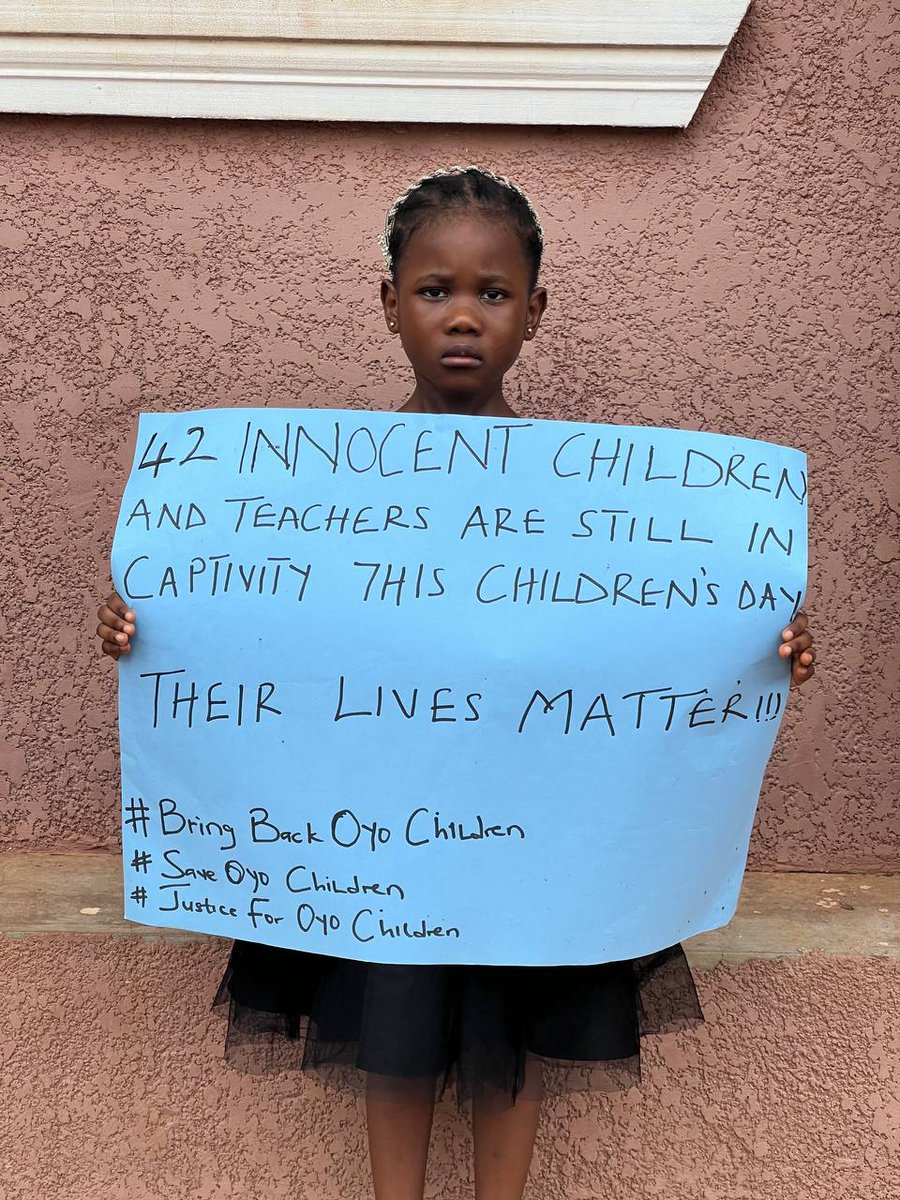 42 INNOCENT CHILDREN
AND TEACHERS ARE STILL IN
CAPTIVITY THIS CHILDREN'S DAY
THEIR LIVES MATTER!!!
# Bring Back Oyo Children
# Save Oyo Children
# Justice For Oyo Children